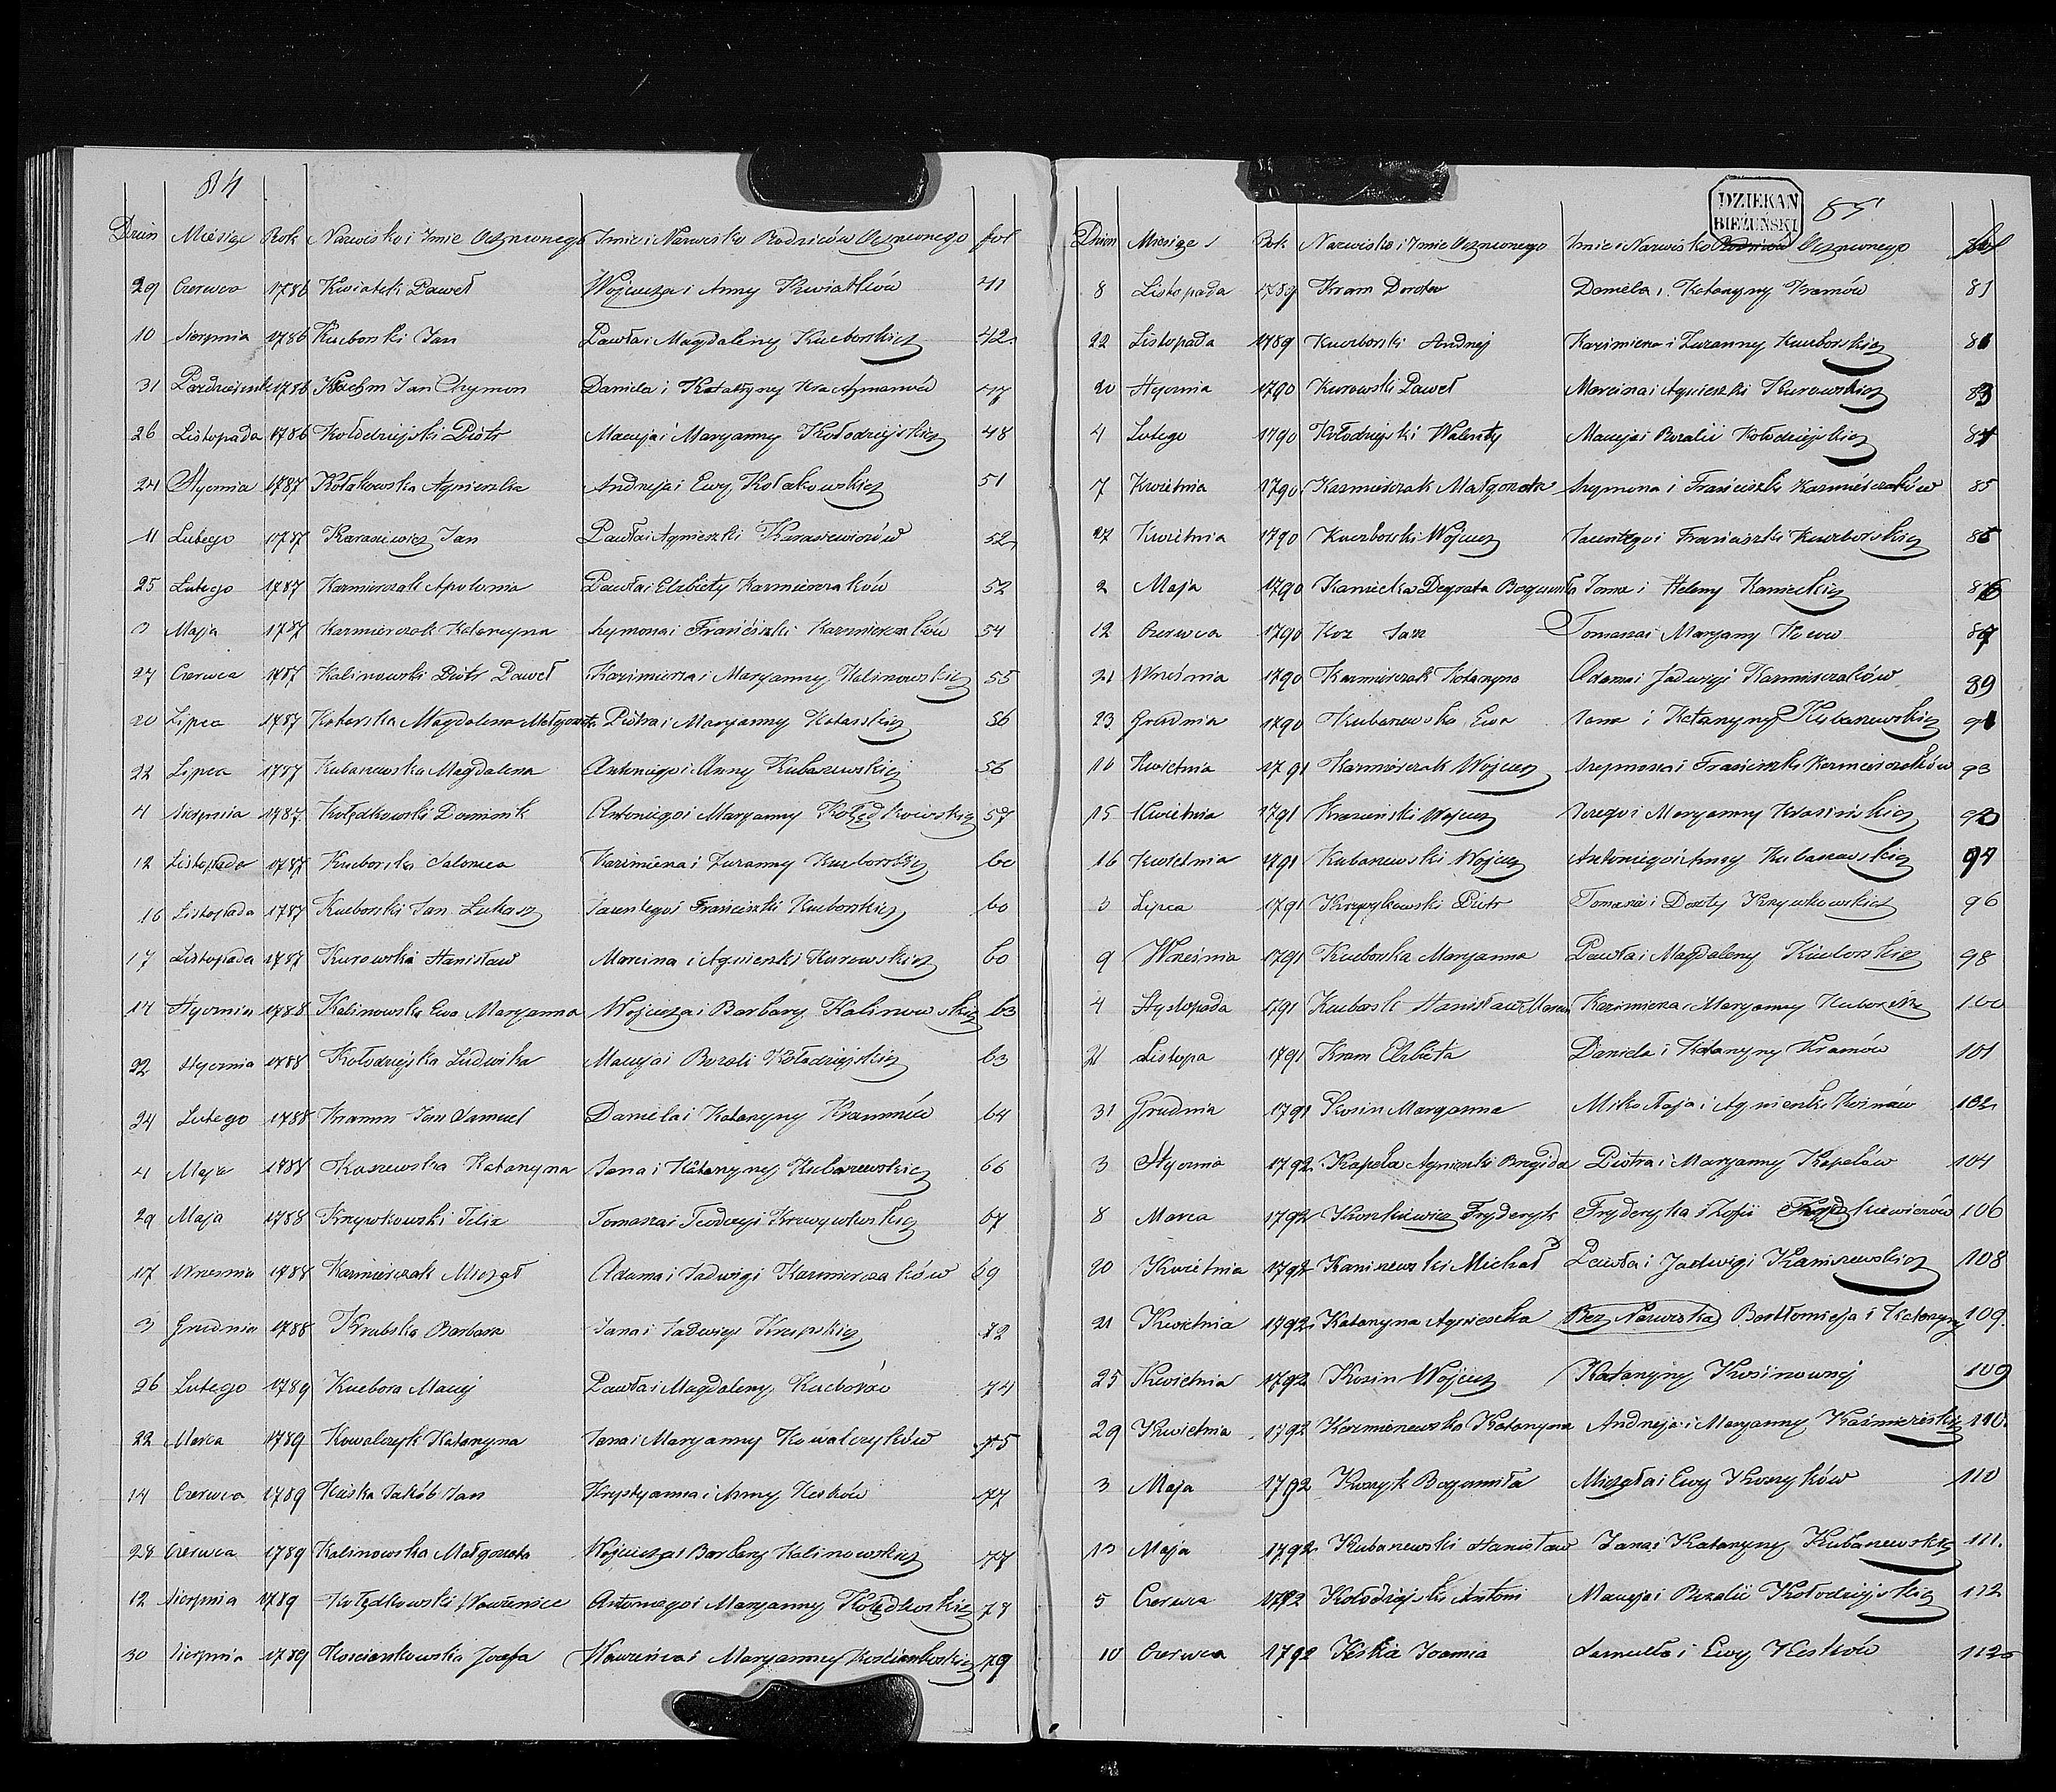 84
Dzień Miesiąc Rok Nazwisko i Imie Oczniowego Imie i Nazwisko Rodziców Oczniowego fol
29 Czerwca 1786 Kwiatek Paweł Wojciecha i Anny Kwiatków 41
10 Sierpnia 1786 Kucborski Jan Pawła i Magdaleny Kucborskich 42
31 Październik 1786 Jan Szymon Daniela i Katarzyny 47
26 Listopada 1786 Kołodziejski Piotr Macieja i Maryanny Kołodziejskich 48
24 Stycznia 1787 Kołakowska Agnieszka Andrzeja i Ewy Kołakowskich 51
11 Lutego 1787 Karasiewicz Jan Pawła i Agnieszki Karasiewiczów 52
25 Lutego 1787 Kazmierczak Apolonia Pawła i Elzbiety Kazmierczaków 52
3 Maja 1787 Kazmierczak Katarzyna Szymona i Franciszki Kazmierczaków 54
27 Czerwca 1787 Kalinowski Piotr Paweł Kazimierza i Maryanny Kalinowskich 55
20 Lipca 1787 Kotarska Magdalena Małgorzata Piotra i Maryanny Kotarskich 56
22 Lipca 1787 Kubanewska Magdalena Antoniego i Anny Kubanewskich 56
4 Sierpnia 1787 Kolędkowski Dominik Antoniego i Maryanny Kolędkowskich 57
12 Listopada 1787 Kucborska Salomea Kazimierza i Zuzanny Kucborskich 60
16 Listopada 1787 Kucborski Jan Łukasz Jacentego i Franciszki Kucborskich 60
17 Listopada 1787 Kurowski Stanisław Marcina i Agnieszki Kurowskich 60
14 Stycznia 1788 Kalinowska Ewa Maryanna Wojciecha i Barbary Kalinowskich 63
22 Stycznia 1788 Kołodziejska Ludwika Macieja i Rozali Kołodziejskich 63
24 Lutego 1788 Kramm Jan Samuel Daniela i Katarzyny Krammów 64
4 Maja 1788 Katarzyna Jana i Katarzyny Kubanewskich 66
29 Maja 1788 Krzywkowski Felix Tomasza i Teodozyi Krzywkowskich 67
17 Wrzesnia 1788 Kazmierczak Michał Adama i Jadwigi Kazmierczaków 69
3 Grudnia 1788 Krubska Barbara Jana i Jadwigi Krupskich 72
26 Lutego 1789 Kucbora Maciej Pawła i Magdaleny Kucborów 74
22 Marca 1789 Kowalczyk Katarzyna Jana i Maryanny Kowalczyków 75
14 Czerwca 1789 Kiska Jakób Jan Krystyanna i Anny Kisków 77
28 Czerwca 1789 Kalinowska Małgorzata Wojciecha i Barbary Kalinowskich 77
12 Sierpnia 1789 Kolędkowski Wawrzeniec Antoniego i Maryanny Kolędkowskich 78
30 Sierpnia 1789 Kosciankowska Jozefa Wawrzeńca i Maryanny Kościankoskich 79
DZIEKAN
BIEŻUŃSKI
85
Dzień Miesiąc Rok Nazwisko i Imie Oczniowego Imie i Nazwisko Rodziców Oczniowego fol
8 Listopada 1789 Kram Dorota Daniela i Katarzyny Kramów 81
22 Listopada 1789 Kucborski Andrzej Kazimierza i Zuzanny Kucborskich 81
20 Stycznia 1790 Kurowski Paweł Marcina i Agnieszki Kurowskich 83
4 Lutego 1790 Kołodziejski Walenty Macieja i Rozalii Kołodziejskich 84
7 Kwietnia 1790 Kazmierczak Małgorzata Szymona i Franciszki Kazmierczaków 85
27 Kwietnia 1790 Kucborski Wojciech Jacentego i Franciszki Kucborskich 85
2 Maja 1790 Kaniecka Bogumiła Jana i Heleny Kanieckich 86
12 Czerwca 1790 Koz Jan Tomasza i Maryany Kozow 87
21 Września 1790 Kazmierczak Katarzyna Adama i Jadwigi Kazmierczaków 89
23 Grudnia 1790 Kubanewska Ewa Jana i Katarzyny Kubanewskich 91
16 Kwietnia 1791 Kazmierczak Wojciech Szepmona i Franciszki Kazmierczaków 93
15 Kwietnia 1791 Krasinski Wojciech Maryanny Krasińskich 93
16 Kwietnia 1791 Kubanewski Wojciech Antoniego i Anny Kubanewskich 94
3 Lipca 1791 Krzywkowski Piotr Tomasza i Doroty Krzywkowskich 96
9 Września 1791 Kucborska Maryanna Pawła i Magdaleny Kucborskich 98
4 Stystopada 1791 Kucborsk Stanisław Marcin Kazimierza i Maryanny Kucborskich 100
21 Listopa 1791 Kram Elzbieta Daniela i Katarzyny Kramów 101
31 Grudnia 1791 Kosin Maryanna Mikołaja i Agnieszki Kosinów 102
3 Stycznia 1792 Kapela Agnieszka Brygida Piotra i Maryanny Kapelów 104
8 Marca 1792 Fryderyk Fryderyka i Zofii 106
20 Kwietnia 1792 Kaniszewski Michał Pawła i Jadwigi Kaniszewskich 108
21 Kwietnia 1792 Katarzyna Agnieszka Bez Nazwiska Bartłomieja i Katarzyny 109.
25 Kwietnia 1792 Kosin Wojciech Katarzyny Kosinowny 109
29 Kwietnia 1792 Kazmierewska Katarzyna Andrzeja i Maryanny 110.
3 Maja 1792 Koszyk Bogumiła Michała i Ewy Koszyków 110
13 Maja 1792 Kubanewski Stanisław Jana i Katarzyny Kubanewskich 111.
5 Czerwca 1792 Kołodziejski Antoni Macieja i Rozalii Kołodziejskich 112
10 Czerwca 1792 Kiska Joanna Samuella i Ewy Kisków 112